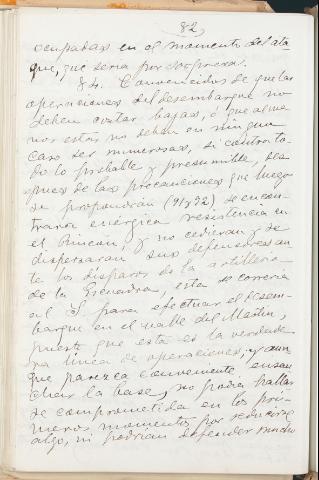 82,
ocupadas en el momento del ata
que, que seria por sorpresa.
84. Convencidos de que las
operaciones del desembarque no
deben costar bajas, ó que al me
nos estas no deben en ningun
caso ser numerosas, si contra to
do lo probable y presumible, des
pues de las precauciones que luego
se propondrán (91 y 92) se encon
trara enérgica resistencia en
el Rincón, y no cedieran y se
dispersaran sus defensores an
te los disparos de la artilleria
de la Escuadra, esta se correria
al S. para efectuar el desem
barque en el valle del Martin,
puesto que esta es la verdade
ra linea de operaciones, y aun
que parezca conveniente ensan
char la base, no podia hallar
se comprometida en los pri
meros momentos por reducirse
algo, ni podrian defender mucho